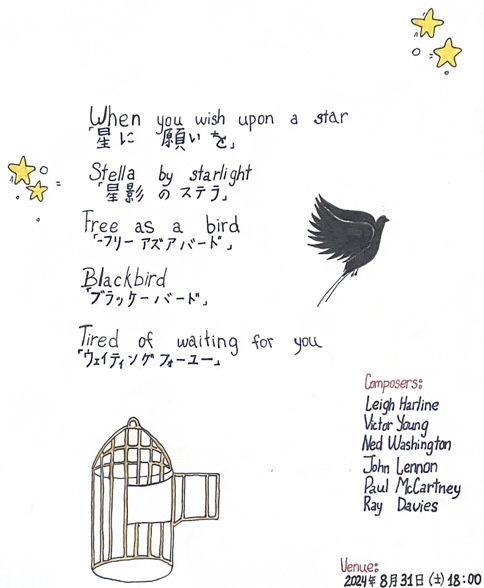 When you wish upon a star
「星に 願いを」
Stella by starlight
「星影のステラ」
Free as a bird
「フリー アズ ア バード」
Blackbird
「ブラッケーバード」
Tired of waiting for you
「ウェイティング フォーユー」
Composers:
Leigh Harline
Victor Young
Ned Washington
John Lennon
Paul McCartney
Ray Davies
Venue:
2024年8月31日(土)18:00